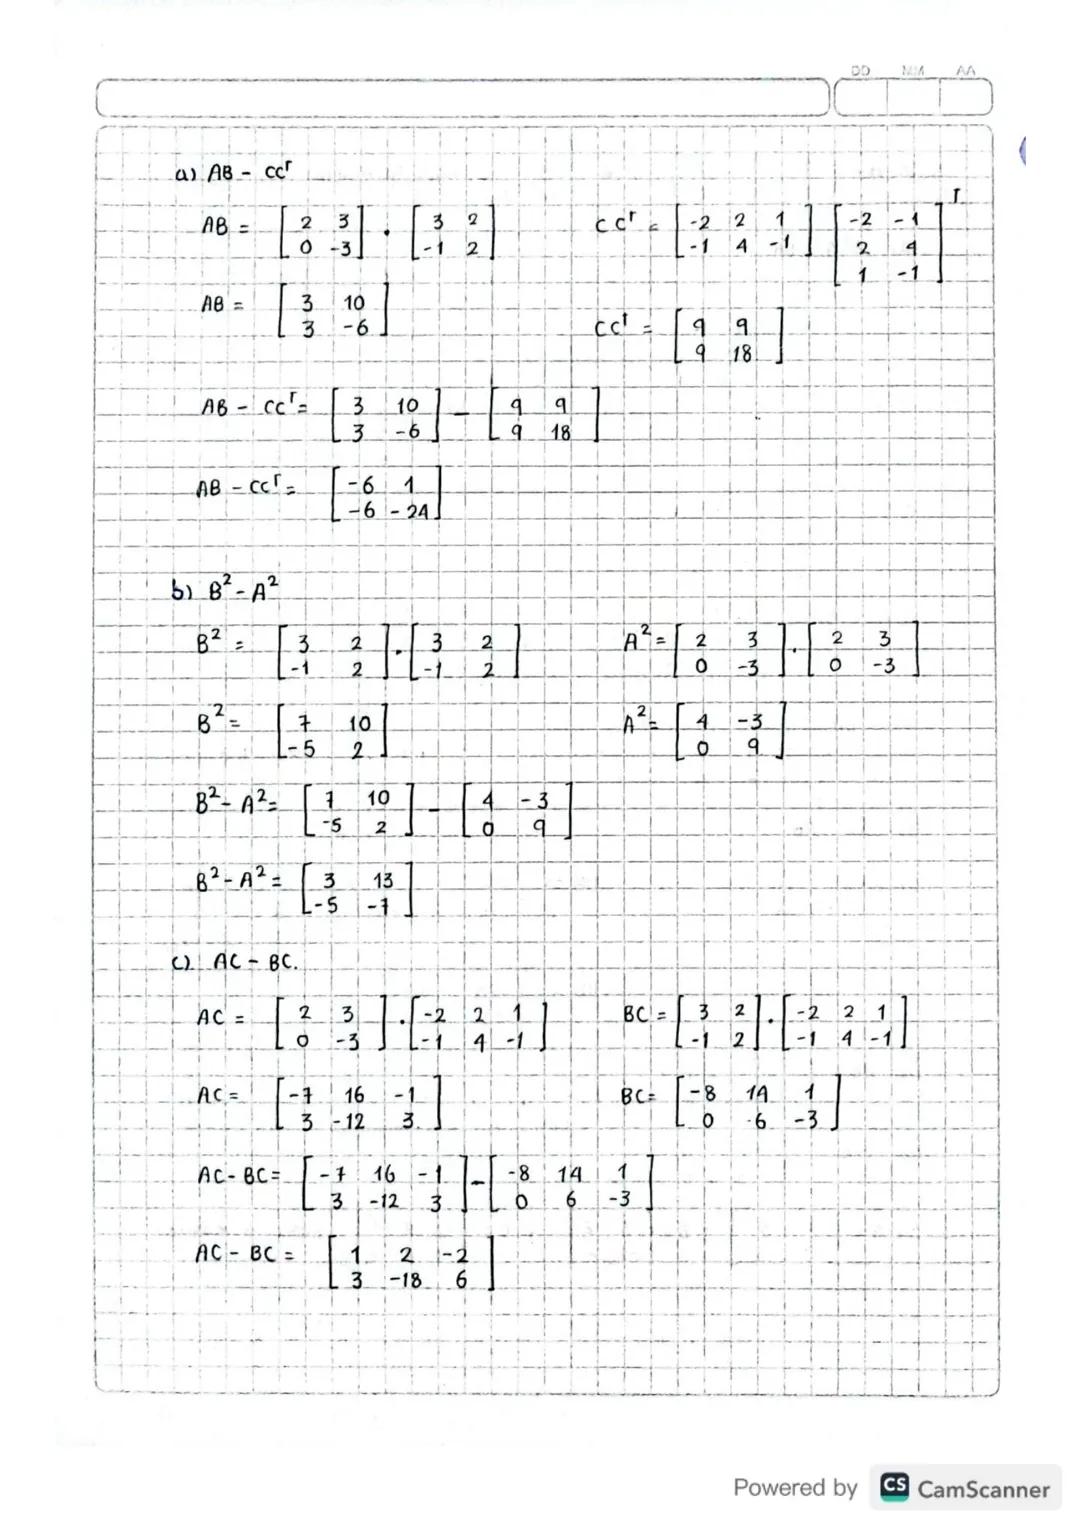 DD MM AA
a) AB - CCᵀ
AB = [2 3; 0 -3] · [3 2; -1 2]    CCᵀ = [-2 2 1; -1 4 -1] [-2 -1; 2 4; 1 -1]ᵀ
AB = [3 10; 3 -6]    CCᵀ = [9 9; 9 18]
AB - CCᵀ = [3 10; 3 -6] - [9 9; 9 18]
AB - CCᵀ = [-6 1; -6 -24]
b) B² - A²
B² = [3 2; -1 2] · [3 2; -1 2]    A² = [2 3; 0 -3] · [2 3; 0 -3]
B² = [7 10; -5 2]    A² = [4 -3; 0 9]
B² - A² = [7 10; -5 2] - [4 -3; 0 9]
B² - A² = [3 13; -5 -7]
c) AC - BC.
AC = [2 3; 0 -3] · [-2 2 1; -1 4 -1]    BC = [3 2; -1 2] · [-2 2 1; -1 4 -1]
AC = [-7 16 -1; 3 -12 3]    BC = [-8 14 1; 0 6 -3]
AC - BC = [-7 16 -1; 3 -12 3] - [-8 14 1; 0 6 -3]
AC - BC = [1 2 -2; 3 -18 6]
Powered by CS CamScanner